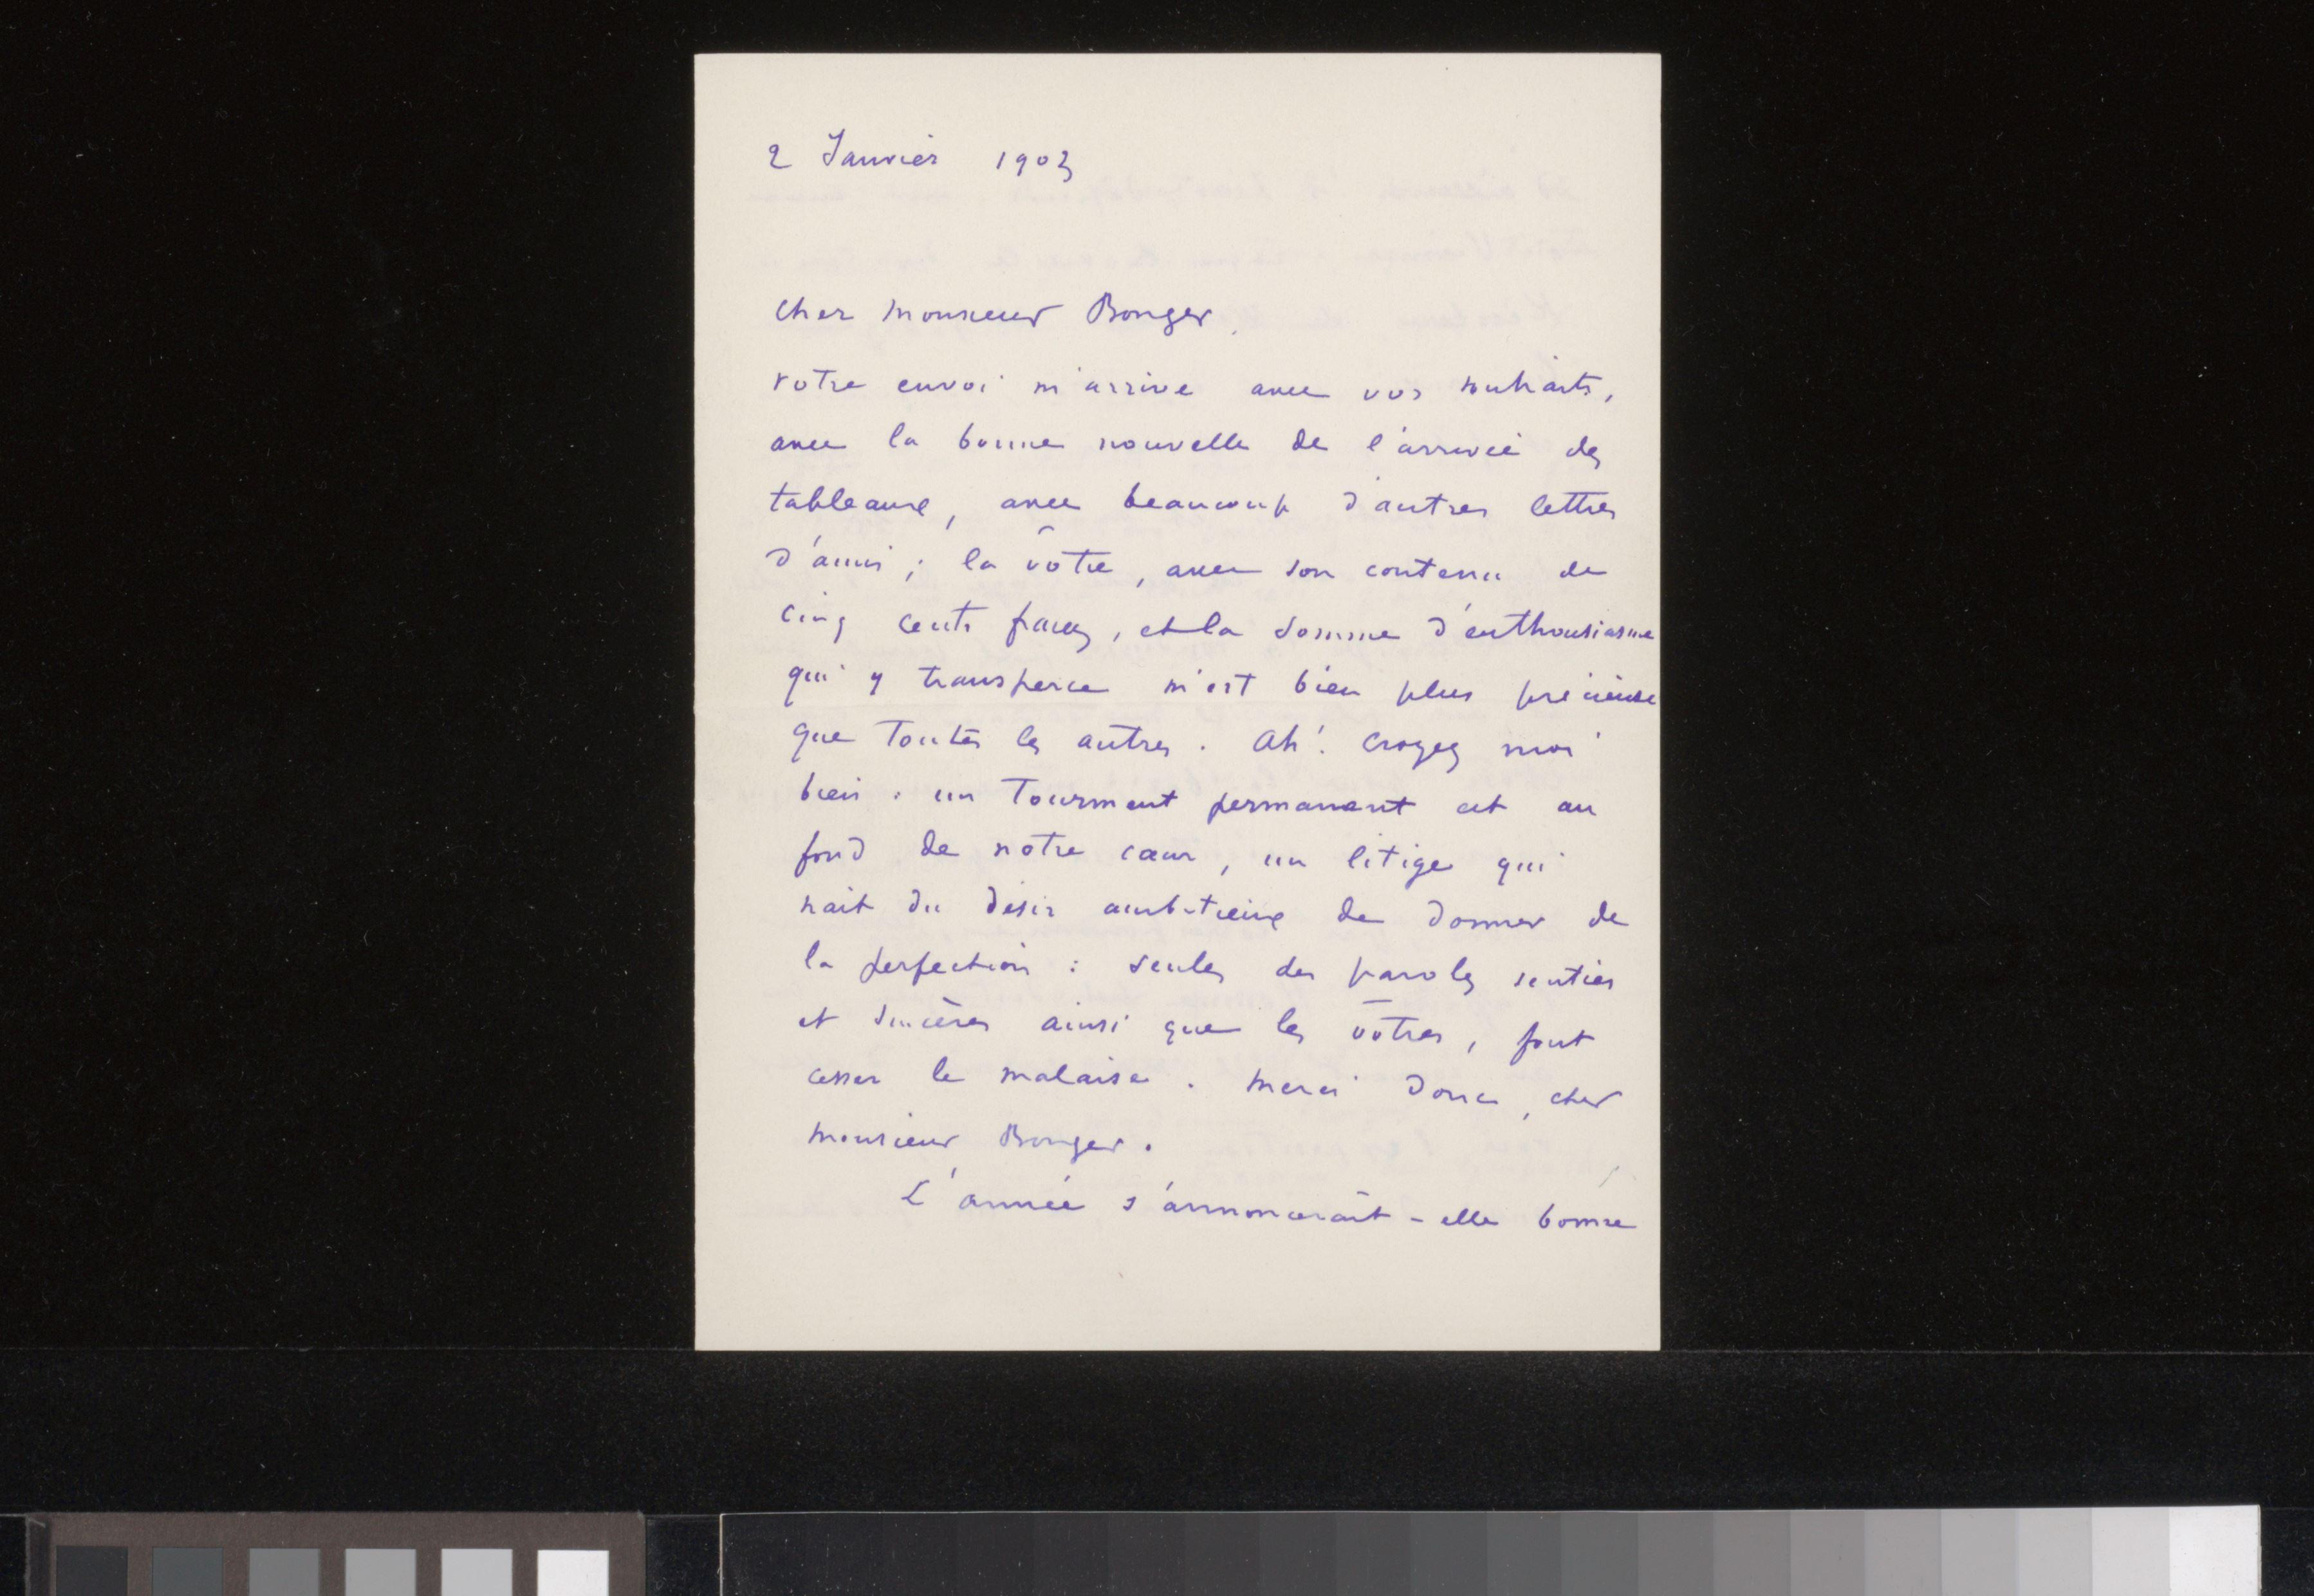 2 Janvier 1903
Cher Monsieur Bonger,
votre envoi m'arrive avec vos souhaits,
avec la bonne nouvelle de l'arrivée des
tableaux, avec beaucoup d'autres lettres
d'amis ; la vôtre, avec son contenu de
cinq cents francs, et la somme d'enthousiasme
qui y transperce m'est bien plus précieuse
que toutes les autres. Ah! croyez moi
bien : un tourment permanent est au
fond de notre cœur, un litige qui
nait du désir ambitieux de donner de
la perfection : seules des paroles senties
et sincères ainsi que les vôtres, font
cesser le malaise. Merci donc, cher
Monsieur Bonger.
L'année s'annoncerait-elle bonne